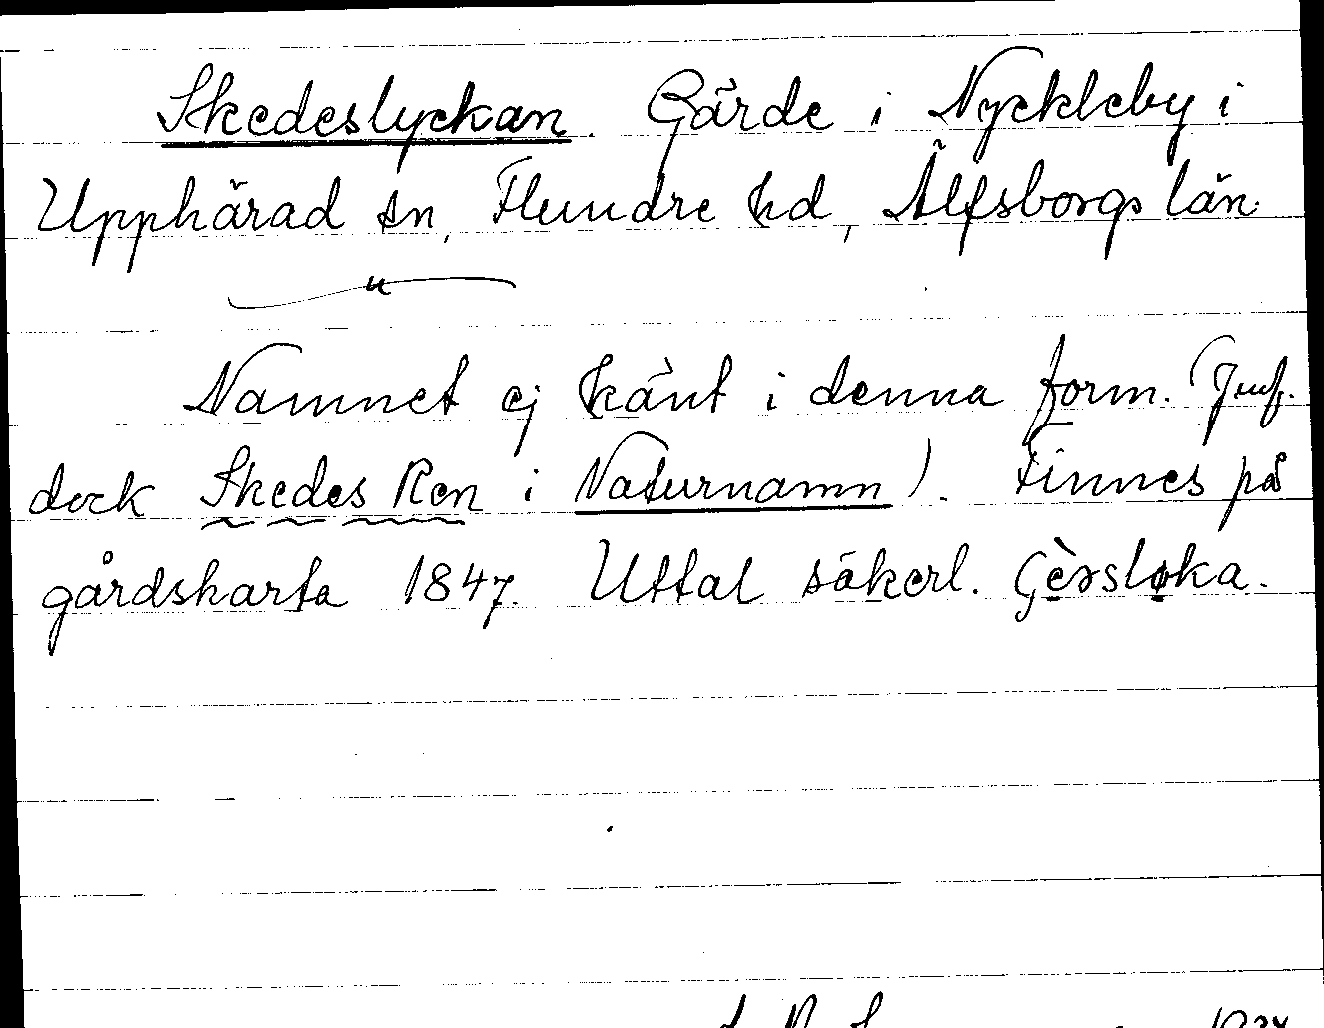 Skedeslyckan. Gärde i Nyckleby i
Upphärad sn, Flundre hd, Älfsborgs län.
"
Namnet ej känt i denna form. (Jmf.
dock Skedes Ren i Naturnamn). Finnes på
gårdskarta 1847. Uttal säkerl.